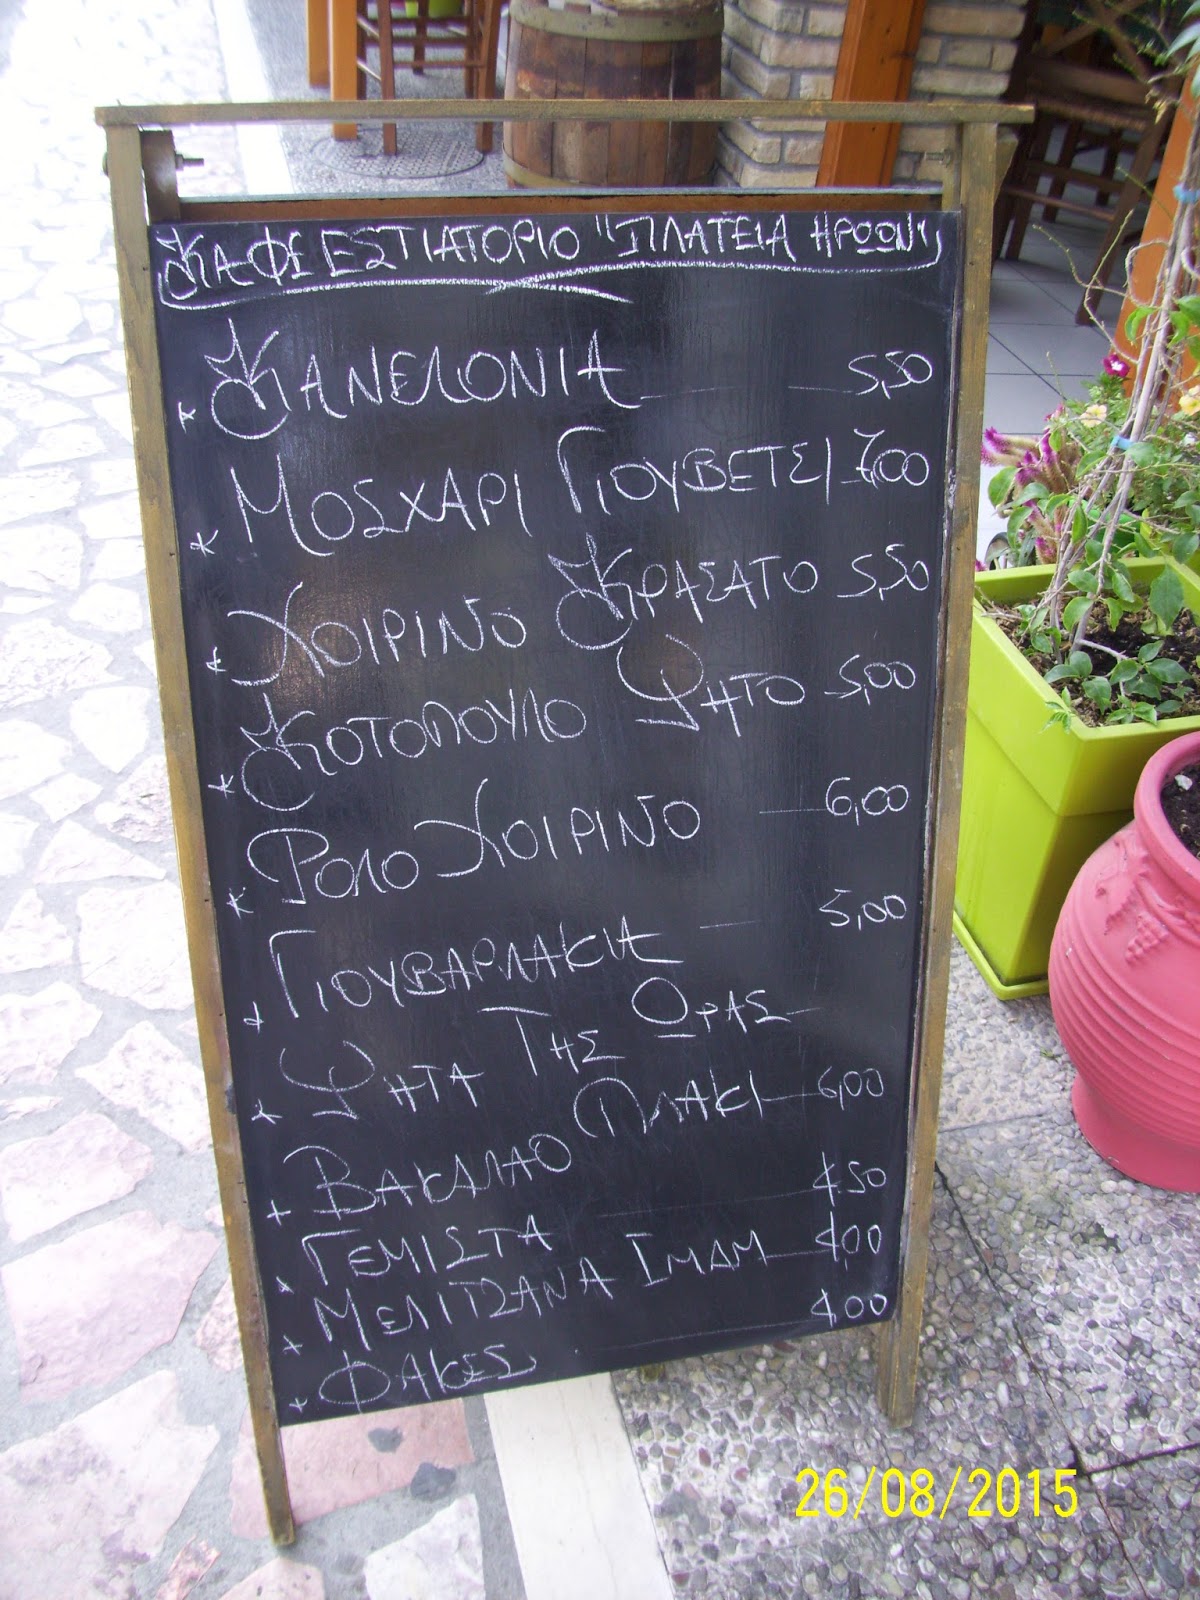 ΚΑΦΕ ΕΣΤΙΑΤΟΡΙΟ "ΠΛΑΤΕΙΑ ΗΡΩΩΝ"
* ΚΑΝΕΛΟΝΙΑ 5,50
* ΜΟΣΧΑΡΙ ΓΙΟΥΒΕΤΣΙ 7,00
* ΧΟΙΡΙΝΟ ΚΡΑΣΑΤΟ 5,50
* ΚΟΤΟΠΟΥΛΟ ΨΗΤΟ 5,00
* ΡΟΛΟ ΧΟΙΡΙΝΟ 6,00
* ΓΙΟΥΒΑΡΛΑΚΙΑ 5,00
* ΨΗΤΑ ΤΗΣ ΩΡΑΣ
* ΒΑΚΑΛΑΟ ΠΛΑΚΙ 6,00
* ΓΕΜΙΣΤΑ 4,50
* ΜΕΛΙΤΖΑΝΑ ΙΜΑΜ 4,00
* ΦΑΚΕΣ 4,00
26/08/2015